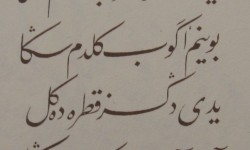 بوینم اگوب كلدم سڭا
یدی دڭز قطره ده كل